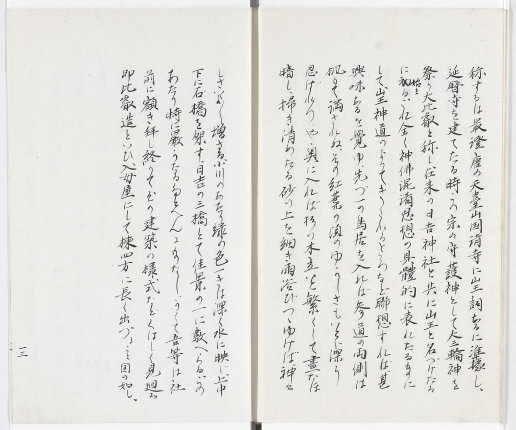 称するは最澄唐の天台山国清寺に山王祠あるに准據し、
延暦寺を建てたる時この宗の守護神として大三輪神を
祭り大比叡と称し在来の日吉神社と共に山王と名づけたる
に初まる、これ全く神佛混淆思想の具體的に表れたるものに
して山王神道のよつてきたるところなど聯想すれば甚
興味あるを覚ゆ先づ一の鳥居を入れば参道の両側は
楓を以て満されね、その紅葉の頃のゆかしさもいと深う
思はれつつ、奥に入れば杉の木立いと繁くして晝なほ
暗し、掃き清めたる砂の上を細き雨浴びつつゆけば神々
しさいよいよ増さる、小川のあたり緑の色一きは深く水に映じ上中
下に石橋を架す、日吉の三橋とて佳景の一に数へらる、この
あたり時に厳かなる
前に額き拝し終りてその建築の様式などくはしく見廻る
即比叡造といひ入母屋にして棟四方に長く出づること図の如し、
一三